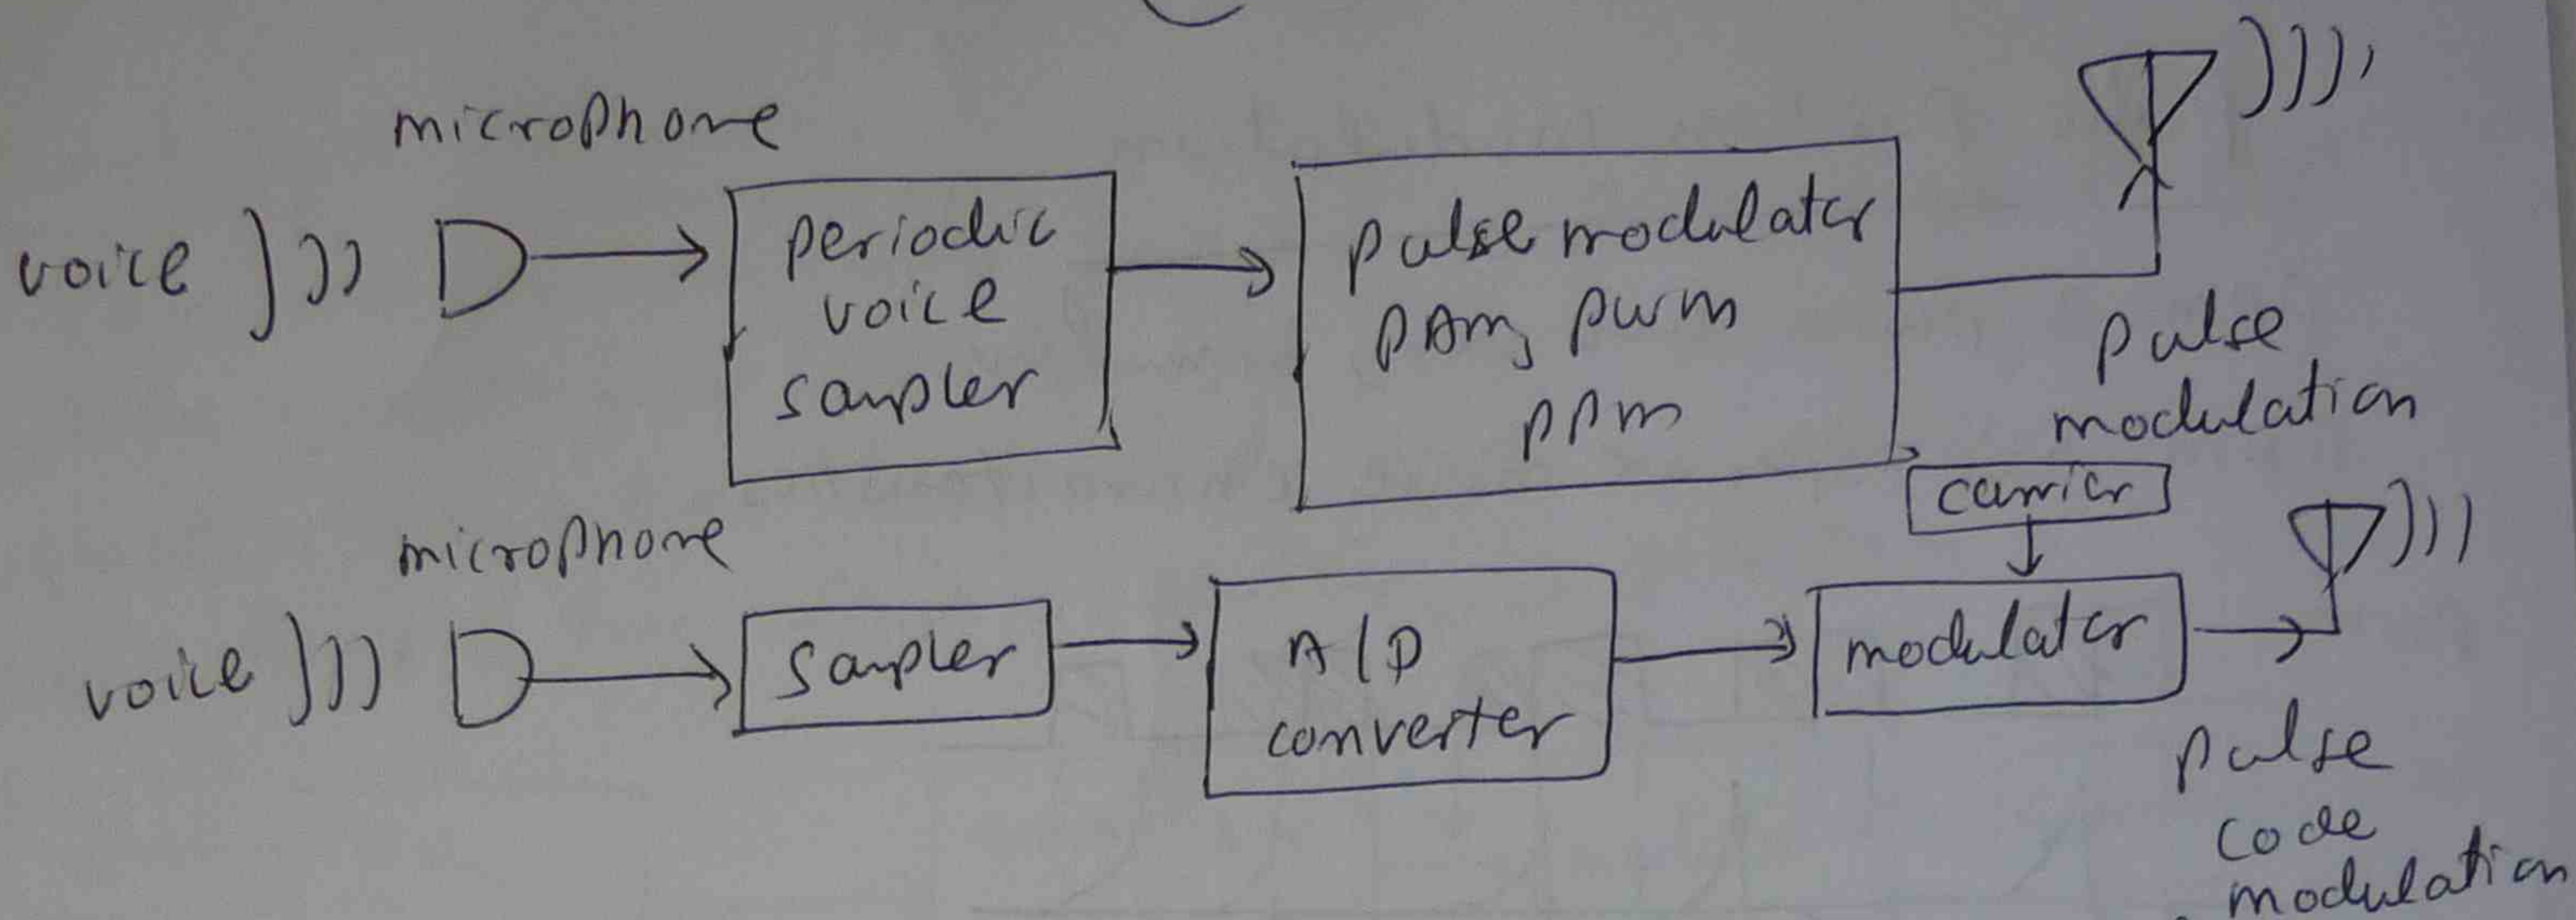 microphone
voice
periodic
voice
sampler
pulse modulator
PAM, PWM
PPM
pulse
modulation
microphone
voice
sampler
A/D
converter
carrier
modulator
pulse
code
modulation